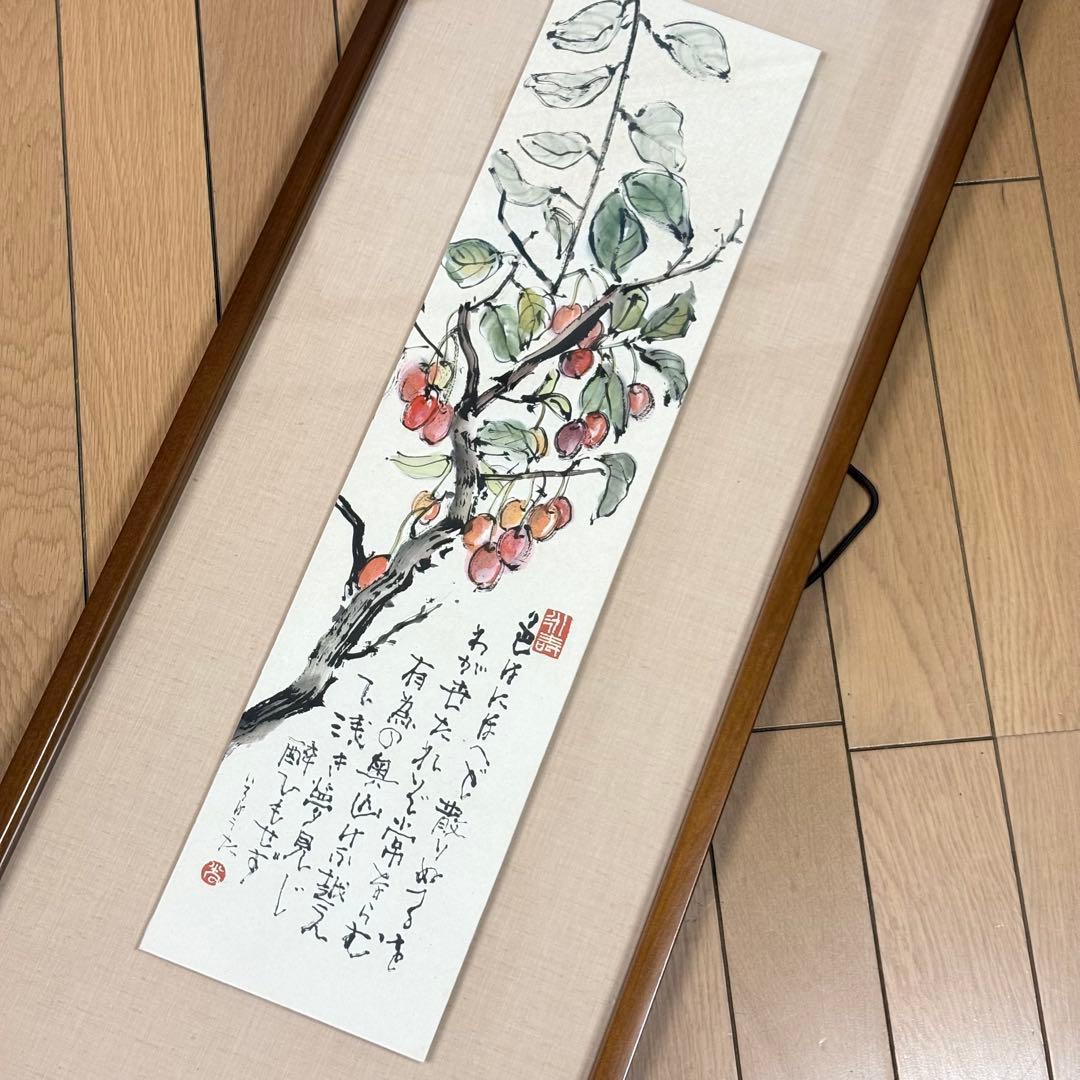 色はにほへど散りぬるを
わが世たれぞ常ならむ
有為の奥山けふ越え
て浅き夢見じ
酔ひもせず
いろはうた